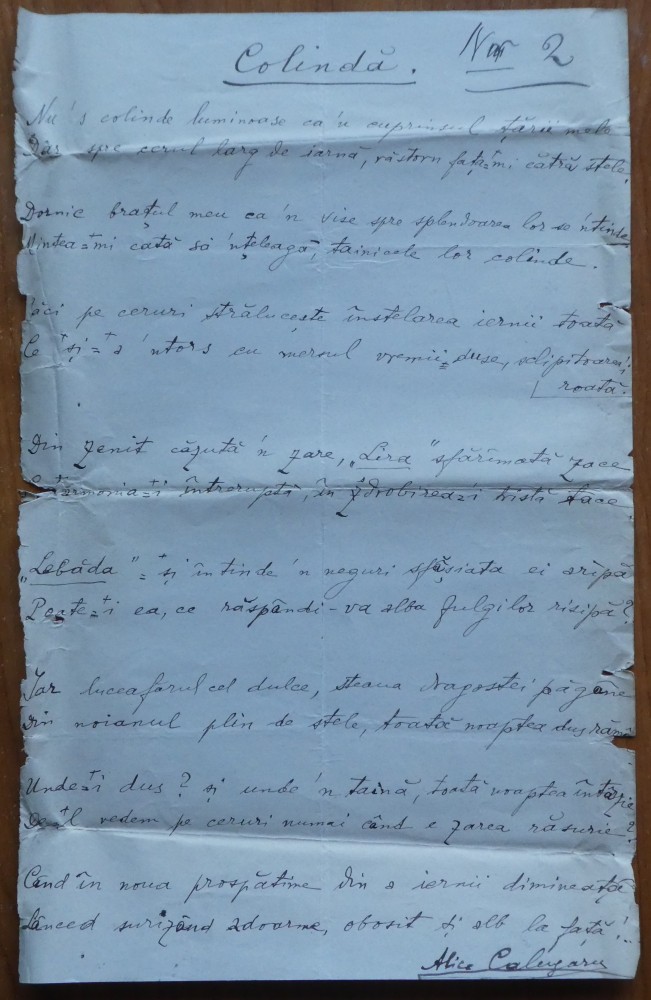 Colindă. Nr 2
Nu's colinde luminoase ca'n cuprinsul țării mele
Dar spre cerul larg de iarnă, răstorn fața-mi cătră stele,
Dornic brațul meu ca'n vise spre splendoarea lor se 'ntinde
Mintea-mi cată să 'nțeleagă, tainicele lor colinde.
Căci pe ceruri strălucește înstelarea iernii toată
Ce și-a 'ntors cu mersul vremii-duse, sclipitoarea'i
roată.
Din zenit căzută 'n zare, „Lira" sfărîmată zace
armonia-i întreruptă, în zdrobirea-i tristă tace
„Lebăda" -și întinde 'n neguri sfășiata ei aripă
Poate-i ea, ce răspândi-va alba fulgilor risipă?
Iar luceafarul cel dulce, steaua dragostei păgâne
Din noianul plin de stele, toată noaptea dus rămâ
Unde-i dus? și unde 'n taină, toată noaptea întârzie
De-l vedem pe ceruri numai când e zarea răsurie?
Când în noua prospătime din a iernii dimineață
Lânced surizând adoarme, obosit și alb la față!..
Alice Calugaru